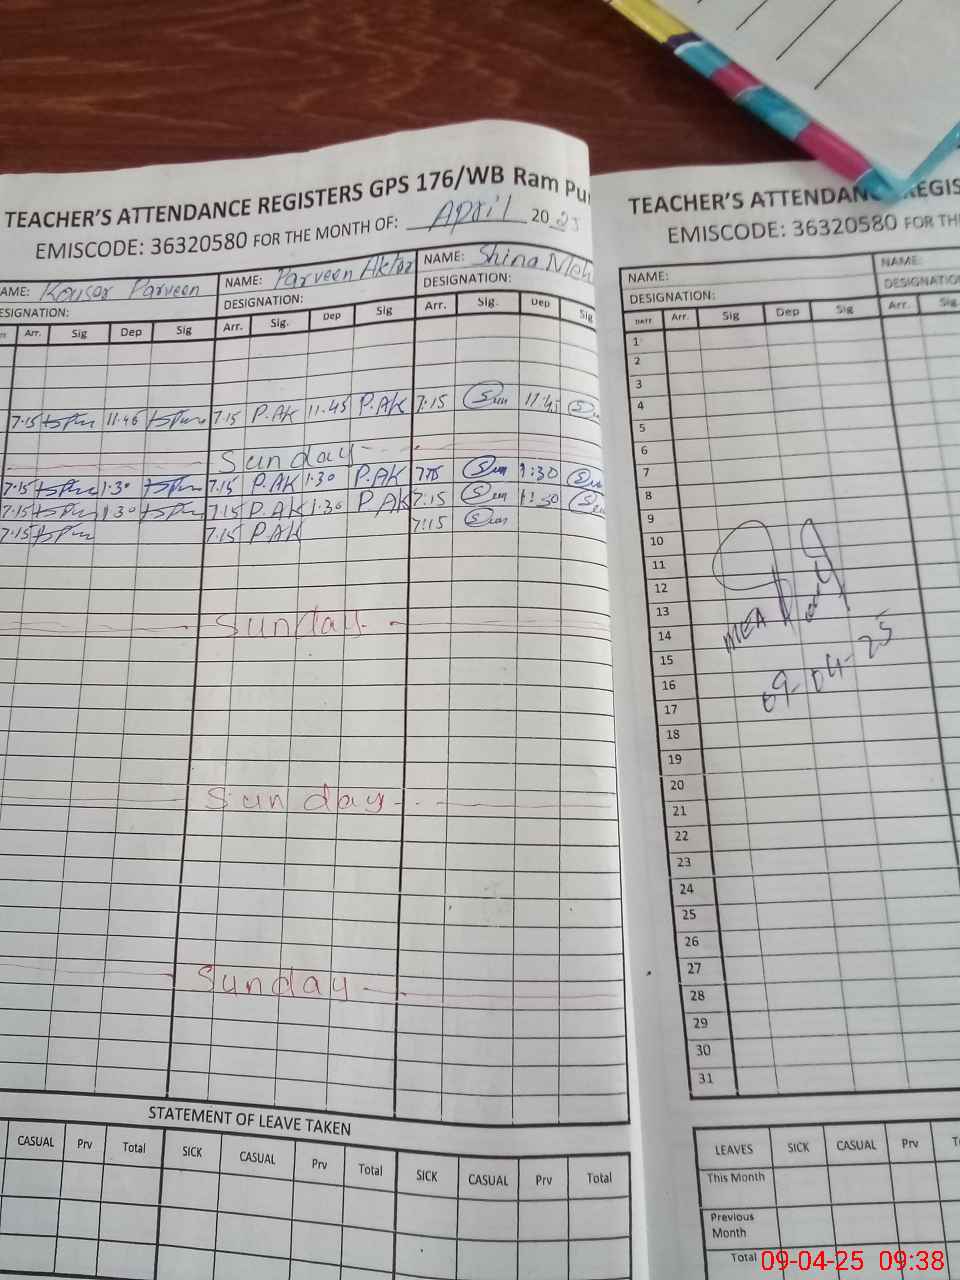 TEACHER'S ATTENDANCE REGISTERS GPS 176/WB Ram Pu
EMISCODE: 36320580 FOR THE MONTH OF: April 2025
AME: Kousar Parveen NAME: Parveen Aktar NAME: Shina Meh
ESIGNATION: DESIGNATION: DESIGNATION:
Arr. Sig Dep Sig Arr. Sig. Dep Sig Arr. Sig. Dep Sig
7.15 11.46 7.15 P.AK 11.45 P.AK 7.15 11:45
Sunday
7.15 1.30 7.15 P.AK 1.30 P.AK 1:30
7.15 1.30 7.15 P.AK 1.30 P.AK 7:15 1:30
7.15 7.15 P.AK 7:15
Sunday
Sunday
Sunday
STATEMENT OF LEAVE TAKEN
CASUAL Prv Total SICK CASUAL Prv Total SICK CASUAL Prv Total
TEACHER'S ATTENDANC REGIS
EMISCODE: 36320580 FOR TH
NAME: NAME:
DESIGNATION: DESIGNATIO
DATE Arr. Sig Dep Sig Arr. Sig.
1
2
3
4
5
6
7
8
9
10
11
12
13
14
15
16
17
18
19
20
21
22
23
24
25
26
27
28
29
30
31
MEA
09-04-25
LEAVES SICK CASUAL Prv
This Month
Previous
Month
Total
09-04-25 09:38